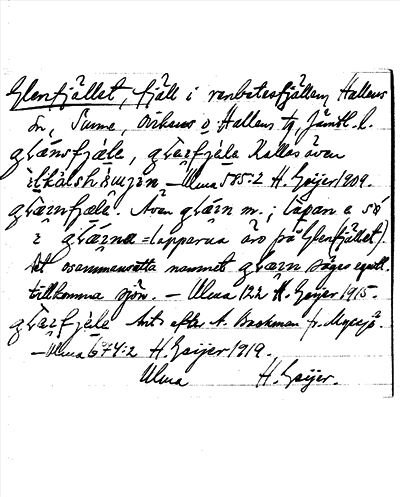 Glenfjället, fjäll i renbetesfjällen, Hallens
sn, Sunne, Oviken o Hallens tg Jämtl. l.
glänsfjäle, glærfjäle Kallas även
– Ulma 585:2 H. Geijer 1909.
glærnfjæle. Även glærn m.; lapan e så
i glærna = lapparna äro på Glen(fjället).
Det osammansatta namnet glærn säges egentl.
tillkomma sjön. – Ulma 122 H. Geijer 1915.
glærfjäle Ant. efter A. Backman fr. Myssjö.
– Ulma 674:2 H. Geijer 1919.
Ulma H. Geijer.